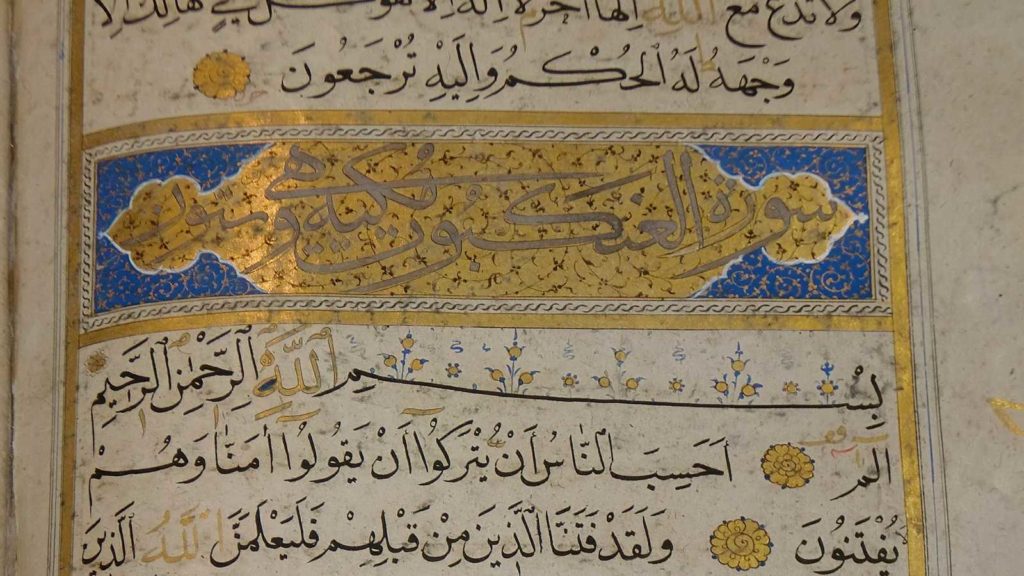 وَلَا تَدْعُ مَعَ اللَّهِ إِلَهًا آخَرَ لَا إِلَهَ إِلَّا هُوَ كُلُّ شَيْءٍ هَالِكٌ إِلَّا
وَجْهَهُ لَهُ الْحُكْمُ وَإِلَيْهِ تُرْجَعُونَ
سورة العنكبوت مكية وهي وستون
بِسْمِ اللَّهِ الرَّحْمَٰنِ الرَّحِيمِ
الم أَحَسِبَ النَّاسُ أَنْ يُتْرَكُوا أَنْ يَقُولُوا آمَنَّا وَهُمْ
يُفْتَنُونَ وَلَقَدْ فَتَنَّا الَّذِينَ مِنْ قَبْلِهِمْ فَلَيَعْلَمَنَّ اللَّهُ الَّذِينَ